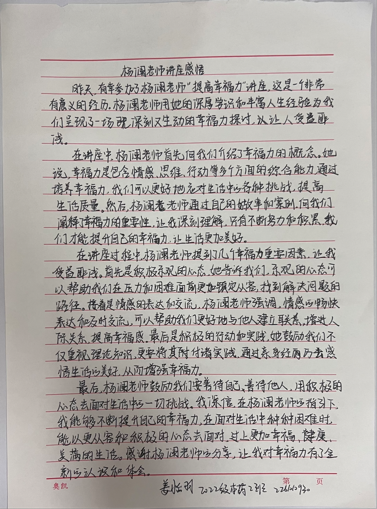 杨澜老师讲座感悟
昨天,有幸参加了杨澜老师"提高幸福力"讲座,这是一个非常
有意义的经历。杨澜老师用她的深厚学识和丰富人生经验为我
们呈现了一场理深刻又生动的幸福力探讨,让人受益匪
浅。
在讲座中,杨澜老师首先向我们介绍了幸福力的概念。她
说,幸福力是包含情感、思维、行动等多个方面的综合能力,通过
培养幸福力,我们可以更好地应对生活中的各种挑战,提高
生活质量。然后,杨澜老师通过自己的故事和案例,向我们
阐释了幸福力的重要性,让我深刻理解,只有不断努力和积累,我
们才能提升自己的幸福力,让生活更加美好。
在讲座过程中,杨澜老师提到了几个幸福力重要因素,让我
受益匪浅。首先是积极乐观的心态,她告诉我们,乐观的心态可
以帮助我们在压力和困难面前更加镇定从容,找到解决问题的
路径。接着是情感的表达和交流,杨澜老师强调,情感的畅快
表达和及时交流,可以帮助我们更好地与他人建立联系,增进人
际关系,提高幸福感。最后是积极的行动和实践,她鼓励我们不
仅重视理论知识,更要将其付诸实践,通过亲身经历去感
悟生活的美好,从而增强幸福力。
最后,杨澜老师鼓励我们要善待自己,善待他人,用积极的
心态去面对生活中的一切挑战。我深信,在杨澜老师的指引下,
我能够不断提升自己的幸福力,在面对生活中种种困难时,
能以更从容和积极的心态去面对,过上更加幸福、健康、
美满的生活。感谢杨澜老师的分享,让我对幸福力有了全
新的认识和体会。
第 页